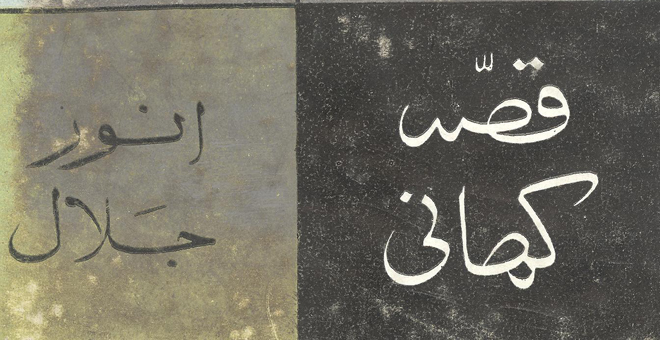 قصّہ
کہانی
انور
جلال